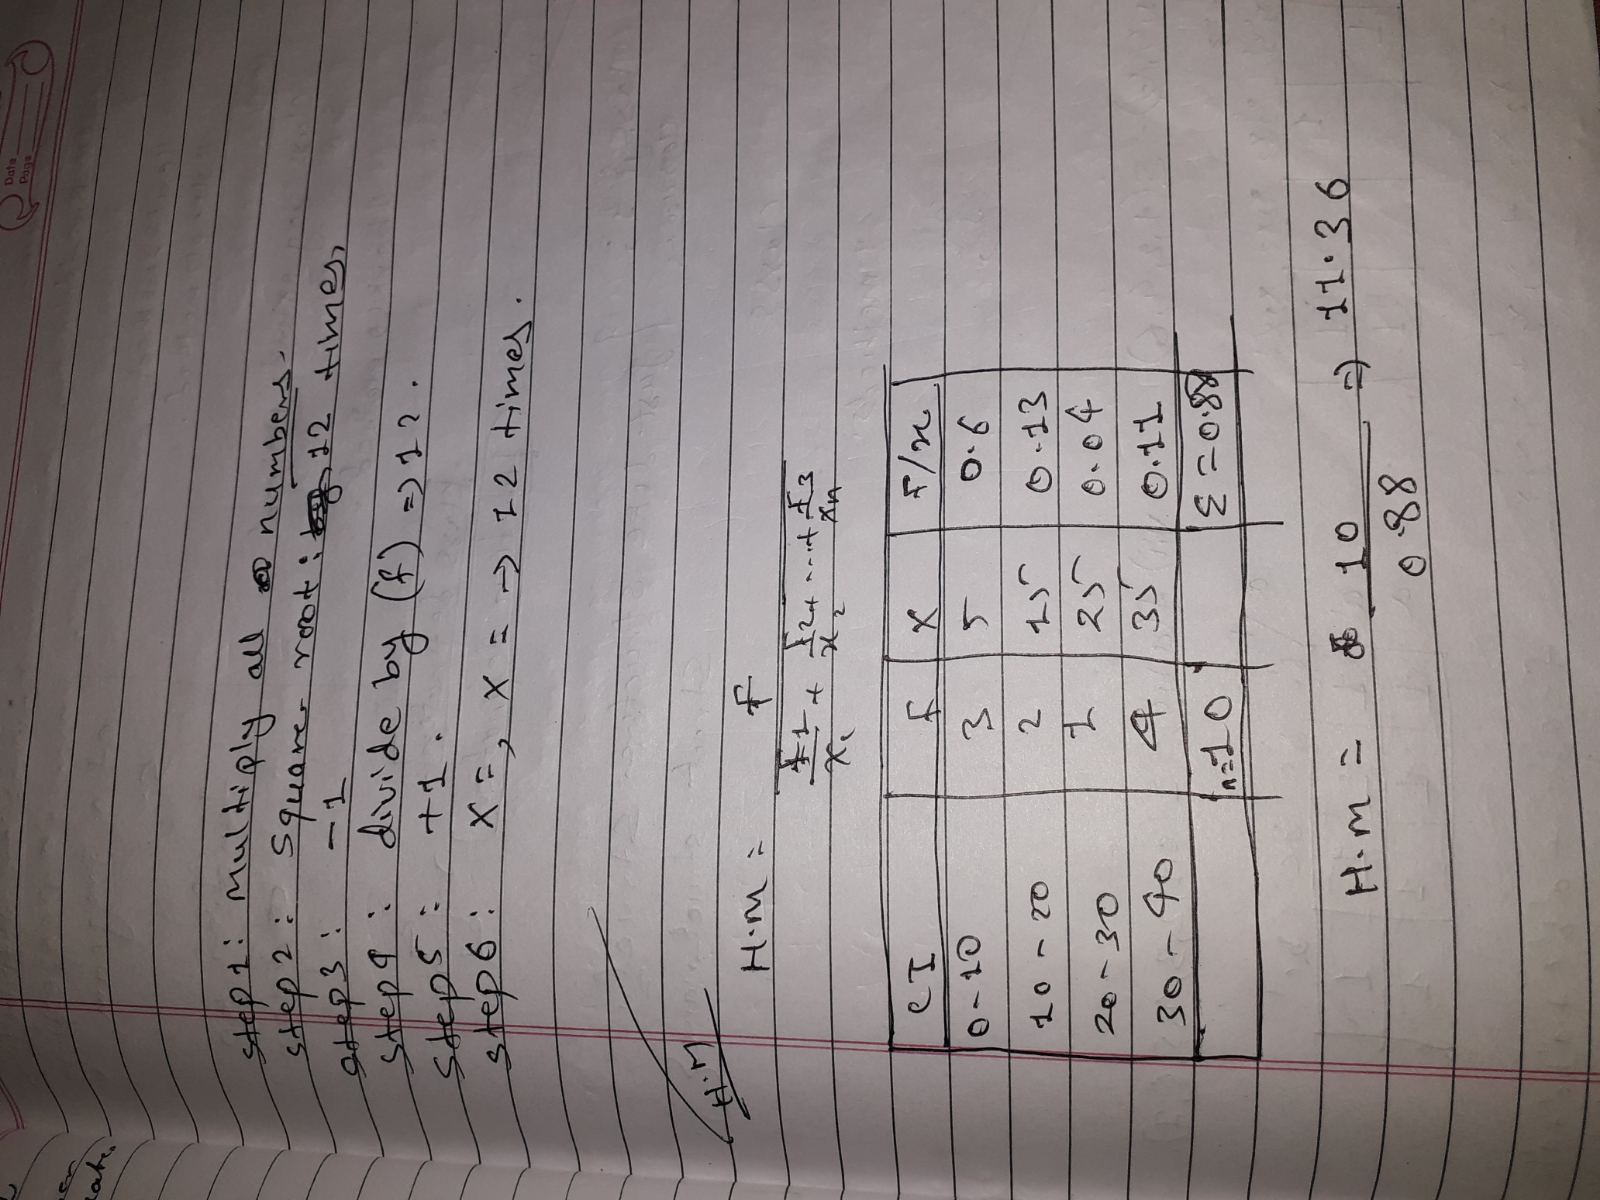 Date
Page
Step 1: multiply all numbers.
Step 2: Square root: 12 times.
Step 3: -1
Step 4: divide by (f) => 12.
Step 5: +1.
Step 6: X=, X = -> 12 times.
H.M
H.m = f
f1/x1 + f2/x2 + ... + f3/xn
CI f X F/x
0-10 3 5 0.6
10-20 2 15 0.13
20-30 1 25 0.04
30-40 4 35 0.11
n=10 Σ=0.88
H.m = 10/0.88 => 11.36